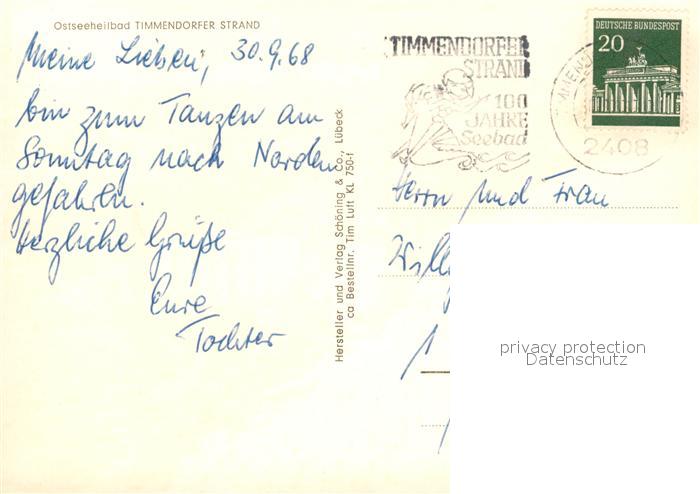 Ostseeheilbad TIMMENDORFER STRAND
Meine Lieben, 30.9.68
bin zum Tanzen am
Sonntag nach Norden
gefahren.
Herzliche Grüße
Eure
Tochter
Hersteller und Verlag Schöning & Co., Lübeck
ca Bestellnr. Tim Luft KL 750-1
TIMMENDORFER
STRAND
100
JAHRE
Seebad
2408
DEUTSCHE BUNDESPOST
20
Herrn und Frau
Will
privacy protection
Datenschutz